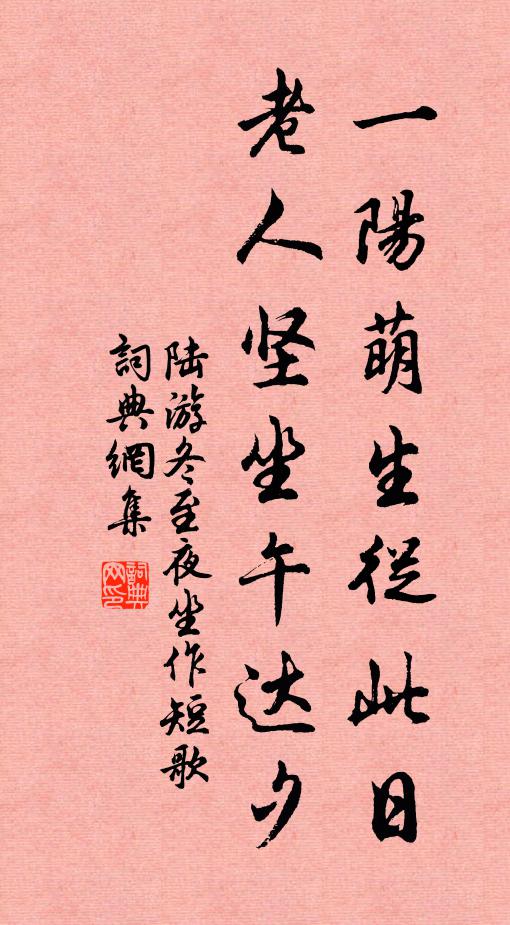 一陽萌生從此日
老人坚坐午达夕
陆游冬至夜坐作短歌
詞典網集
詞典网印